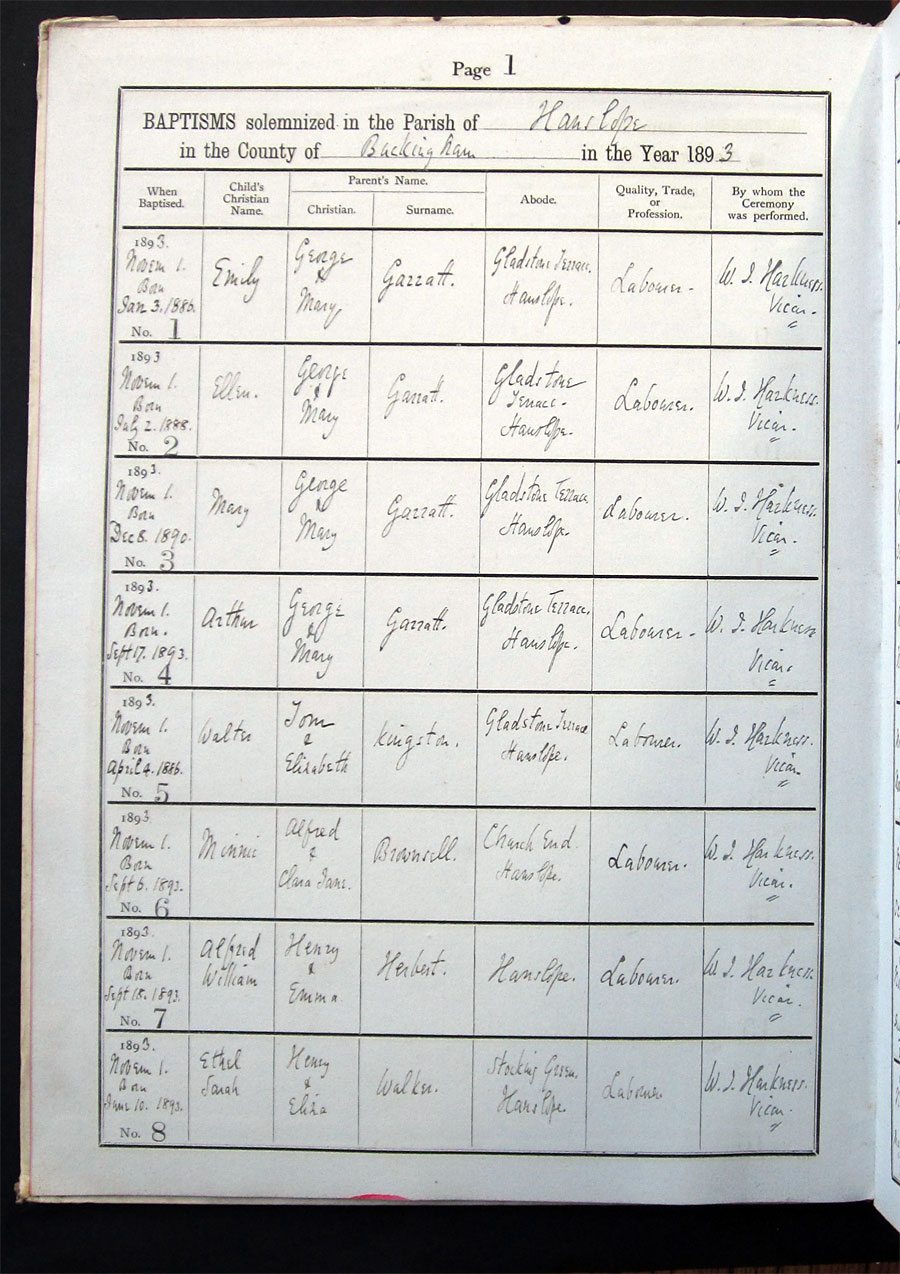 Page 1
BAPTISMS solemnized in the Parish of Hanslope
in the County of Buckingham in the Year 1893
When Baptised.
Child's Christian Name.
Parent's Name.
Christian.
Surname.
Abode.
Quality, Trade, or Profession.
By whom the Ceremony was performed.
1893.
Novem 1.
Born
Jan 3. 1886.
No. 1
Emily
George
&
Mary
Garratt.
Gladstone Terrace.
Hanslope.
Labourer-
W. J. Harkness.
Vicar.
1893
Novem 1.
Born
July 2. 1888.
No. 2
Ellen.
George
&
Mary
Garratt.
Gladstone
Terrace-
Hanslope.
Labourer.
W. J. Harkness.
Vicar.
1893.
Novem 1.
Born
Dec 8. 1890.
No. 3
Mary
George
&
Mary
Garratt.
Gladstone Terrace
Hanslope.
Labourer.
W. J. Harkness.
Vicar.
1893.
Novem 1.
Born.
Sept 17. 1893.
No. 4
Arthur
George
&
Mary
Garratt.
Gladstone Terrace.
Hanslope.
Labourer-
W. J. Harkness
Vicar.
1893.
Novem 1.
Born
April 4. 1886.
No. 5
Walter
Tom
&
Elizabeth
Kingston.
Gladstone Terrace
Hanslope.
Labourer.
W. J. Harkness.
Vicar.
1893.
Novem 1.
Born
Sept 6. 1893.
No. 6
Minnie
Alfred
&
Clara Jane.
Brownsell.
Church End.
Hanslope.
Labourer.
W. J. Harkness.
Vicar.
1893.
Novem 1.
Born
Sept 18. 1893.
No. 7
Alfred
William
Henry
&
Emma
Herbert.
Hanslope.
Labourer.
W. J. Harkness.
Vicar.
1893.
Novem 1.
Born
10. 1893.
No. 8
Ethel
Sarah
Henry
&
Eliza
Walker.
Stocking Green.
Hanslope.
Labourer
W. J. Harkness.
Vicar.